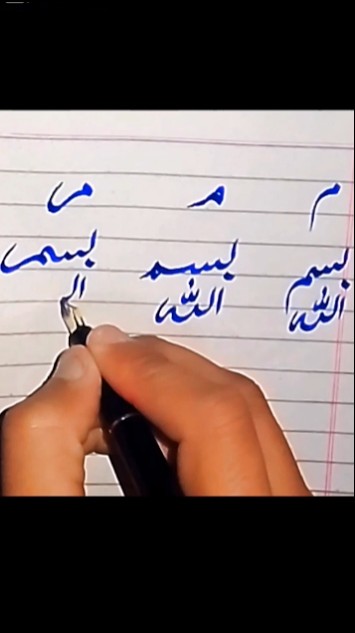 م م م
بسم بسم بسم
الله الله ال